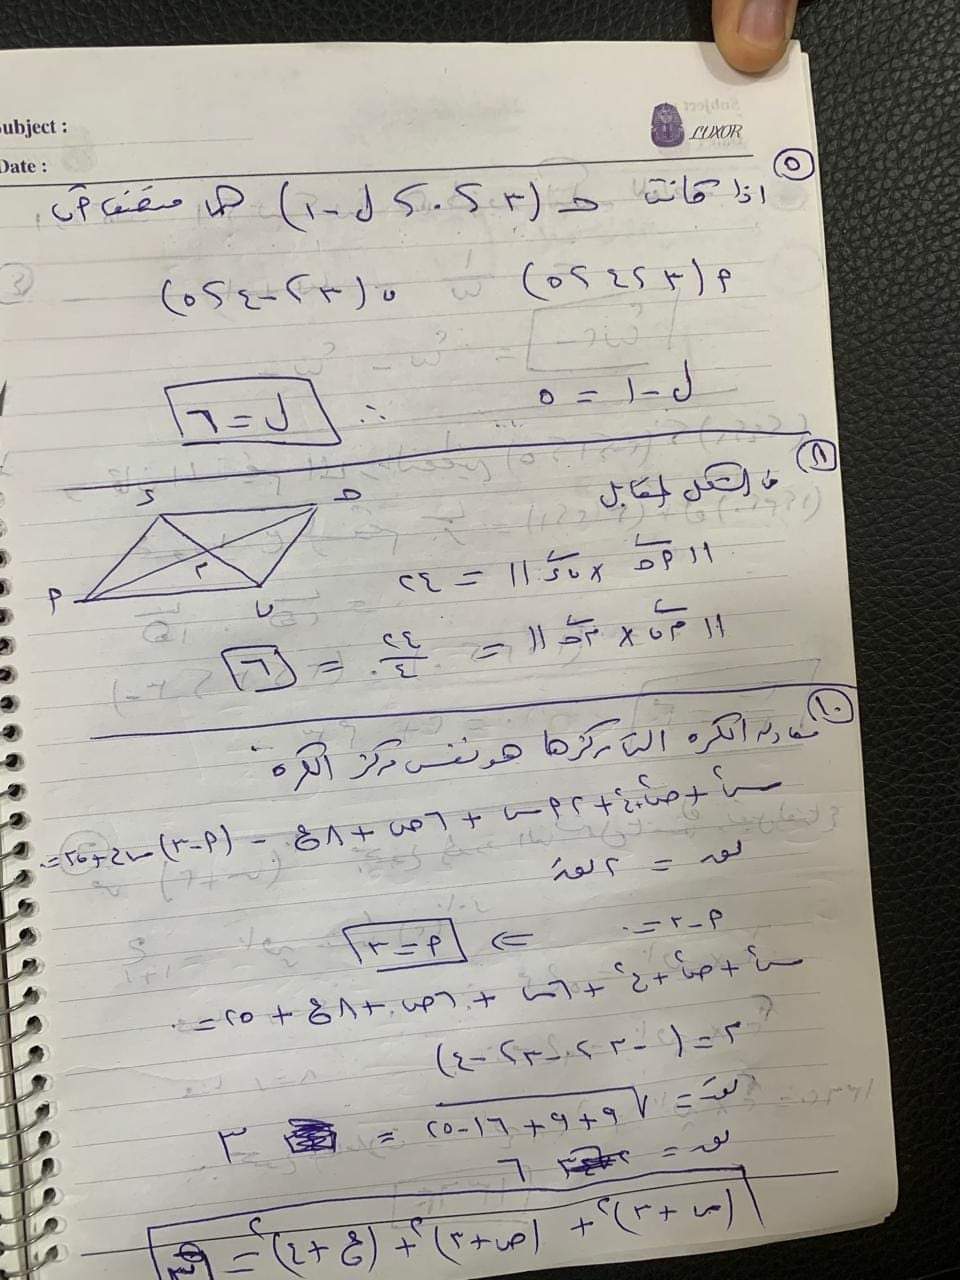 Subject :
Date :
LUXOR
٥
اذا كانت حـ (٣ ، ٠ ، ل-١) هى منتصف أب
أ (٣ ، ٤ ، ٥) ب (٣ ، -٤ ، ٥)
ل-١ = ٥ ∴ ل = ٦
٨
فى الشكل المقابل
|| أحـ × بء || = ٢٤
|| مب × محـ || = ٢٤/٤ = ٦
ء حـ
م
أ ب
١٠
معادله الكره التى مركزها هو نفس مركز الكره
س² + ص² + ع² + ٢أس + ٦ص + ٨ع - (أ-٣) س ص + ٢٥ = ٠
نو = ٢ نوَ
أ-٣ = ٠ ⇒ أ = ٣
س² + ص² + ع² + ٦س + ٦ص + ٨ع + ٢٥ = ٠
م = (-٣ ، -٣ ، -٤)
نوَ = √٩+٩+١٦-٢٥ = ٣
نو = ٦
(س+٣)² + (ص+٣)² + (ع+٤)² = ٣٦